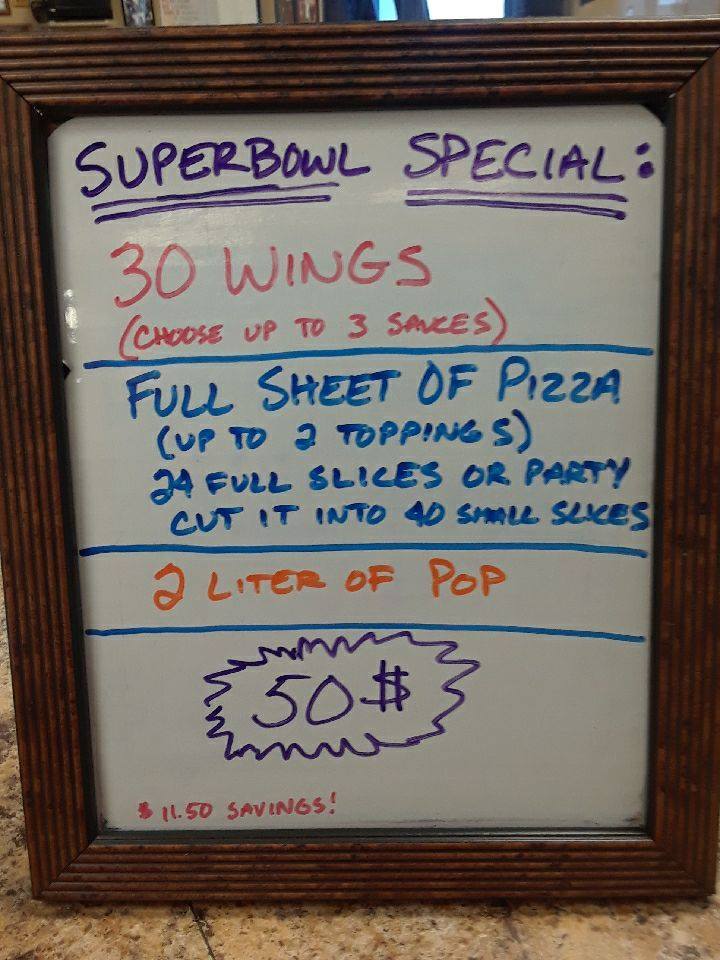 SUPERBOWL SPECIAL:
30 WINGS
(CHOOSE UP TO 3 SAUCES)
FULL SHEET OF PIZZA
(UP TO 2 TOPPINGS)
24 FULL SLICES OR PARTY
CUT IT INTO 40 SMALL SLICES
2 LITER OF POP
50$
$11.50 SAVINGS!